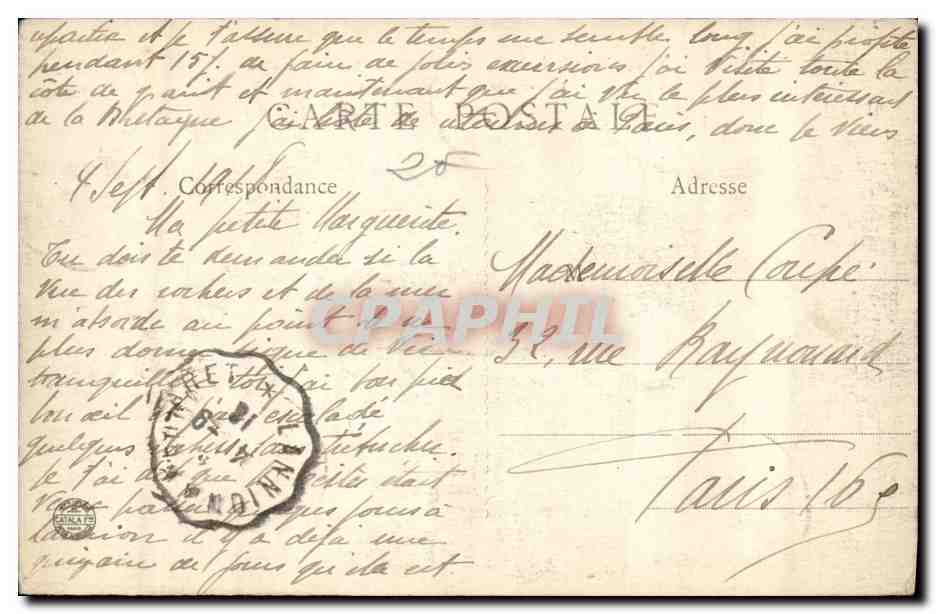 repartie et je t'assure que le temps me semble long j'ai profité
pendant 15 j. de faire de jolies excursions j'ai visité toute la
côte de granit et maintenant que j'ai vu le plus intéressant
de la Bretagne j'ai hâte de Paris, donc le viens
CARTE POSTALE
25
4 Sept.
Correspondance
Ma petite Marguerite.
Tu dois te demander si la
vue des rochers et de la mer
m'absorbe au point de ne
plus donner signe de vie
tranquillise toi j'ai bon pied
bon œil j'ai escaladé
quelques rochers sans trébucher
Je t'ai dit que était
venue passer quelques jours à
Lannion il y a déjà une
quinzaine de jours qu'elle est
LANNION
CATALA Fres
PARIS
CPAPHIL
Adresse
Mademoiselle Coupé
32, rue Raynouard
Paris 16e